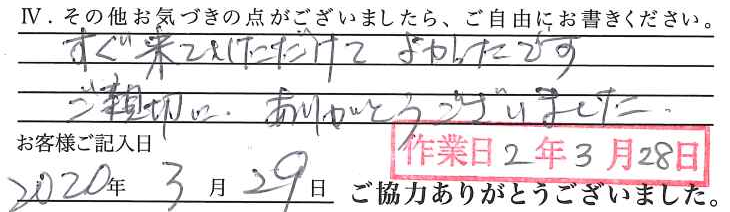 Ⅳ．その他お気づきの点がございましたら、ご自由にお書きください。
すぐ来ていただけて よかったです
ご親切に．ありがとうございました．
お客様ご記入日
作業日2年3月28日
2020年 3月29日
ご協力ありがとうございました。